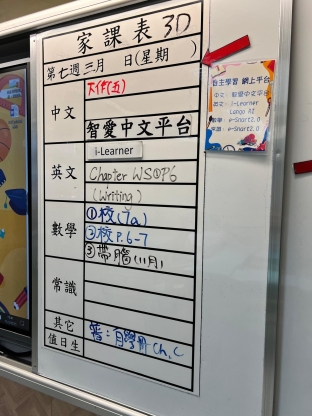 家課表 3D
第七週 三月 日(星期 )
中文
大作(五)
智愛中文平台
i-Learner
英文
Chapter WS①P6
(Writing)
數學
①校(7a)
②校 P.6-7
常識
其它
值日生
自主學習 網上平台
中文: 智愛中文平台
英文: i-Learner
數學: e-Smart2.0
常識: e-Smart2.0